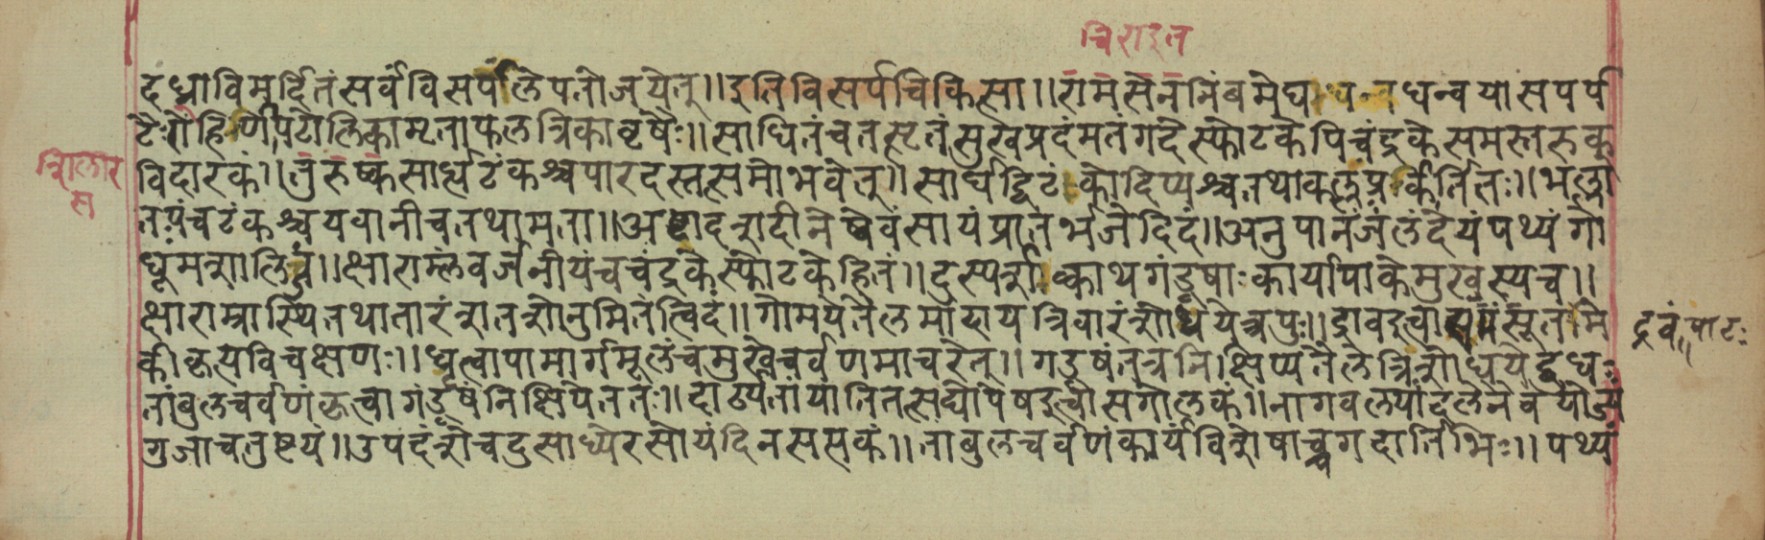 चिराइत
दध्नाविमर्दितंसर्वंविसर्पलेपतोजयेत्॥इतिविसर्पचिकित्सा॥रामसेननिंबमेघ धन्वयासपर्प
टैःरोहिणीपटोलिकामृताफलत्रिकावृषैः॥साधितंचतत्सृतंसुखप्रदंमतंगदेस्फोटकेपिचंद्रकेसमस्तरुक्
विदारकं॥तुरुष्कसार्ध्यटंकश्चपारदस्तत्समोभवेत्॥सार्धद्विटंकोदिप्यश्चतथाकल्लप्रकीर्तितः॥भल्ला
तपंचटंकश्चयवानीचतथामता॥अष्टादशदीनेष्वेवंसायंप्रातर्भजेदिदं॥अनुपानंजलंदेयंपथ्यंगो
धूमशालिनं॥क्षाराम्लंवर्जनीयंचचंद्रकेस्फोटकेहितं॥दुस्पर्शाक्काथगंडूषाःकार्यापाकेमुखस्यच॥
क्षाराम्रास्थितथातारंशतशोनुमितंत्विदं॥गोमयंतैलमादायत्रिवारंशोधयेत्रपुः॥द्रावइत्वा सूतमे
कीकृत्यविचक्षणः॥धृत्वापामार्गमूलंचमुखेचर्वणमाचरेत्॥गडूषंतत्रनिक्षिप्यतैलेत्रिशोधयेद्बुधः
तांबुलचर्वणंकृत्वागंडूषंनिक्षिपेततः॥दार्ढ्यतांयातितत्सद्योपेषइत्वासगोलकं॥नागवल्यादलेनैव
गुजाचतुष्टयं॥उपदंशेचदुसाध्येरसोयंदिनससकं॥ताबुलचर्वणंकार्यंविशेषाच्चगदार्तिभिः॥पथ्यं
द्रवं॥पाटः